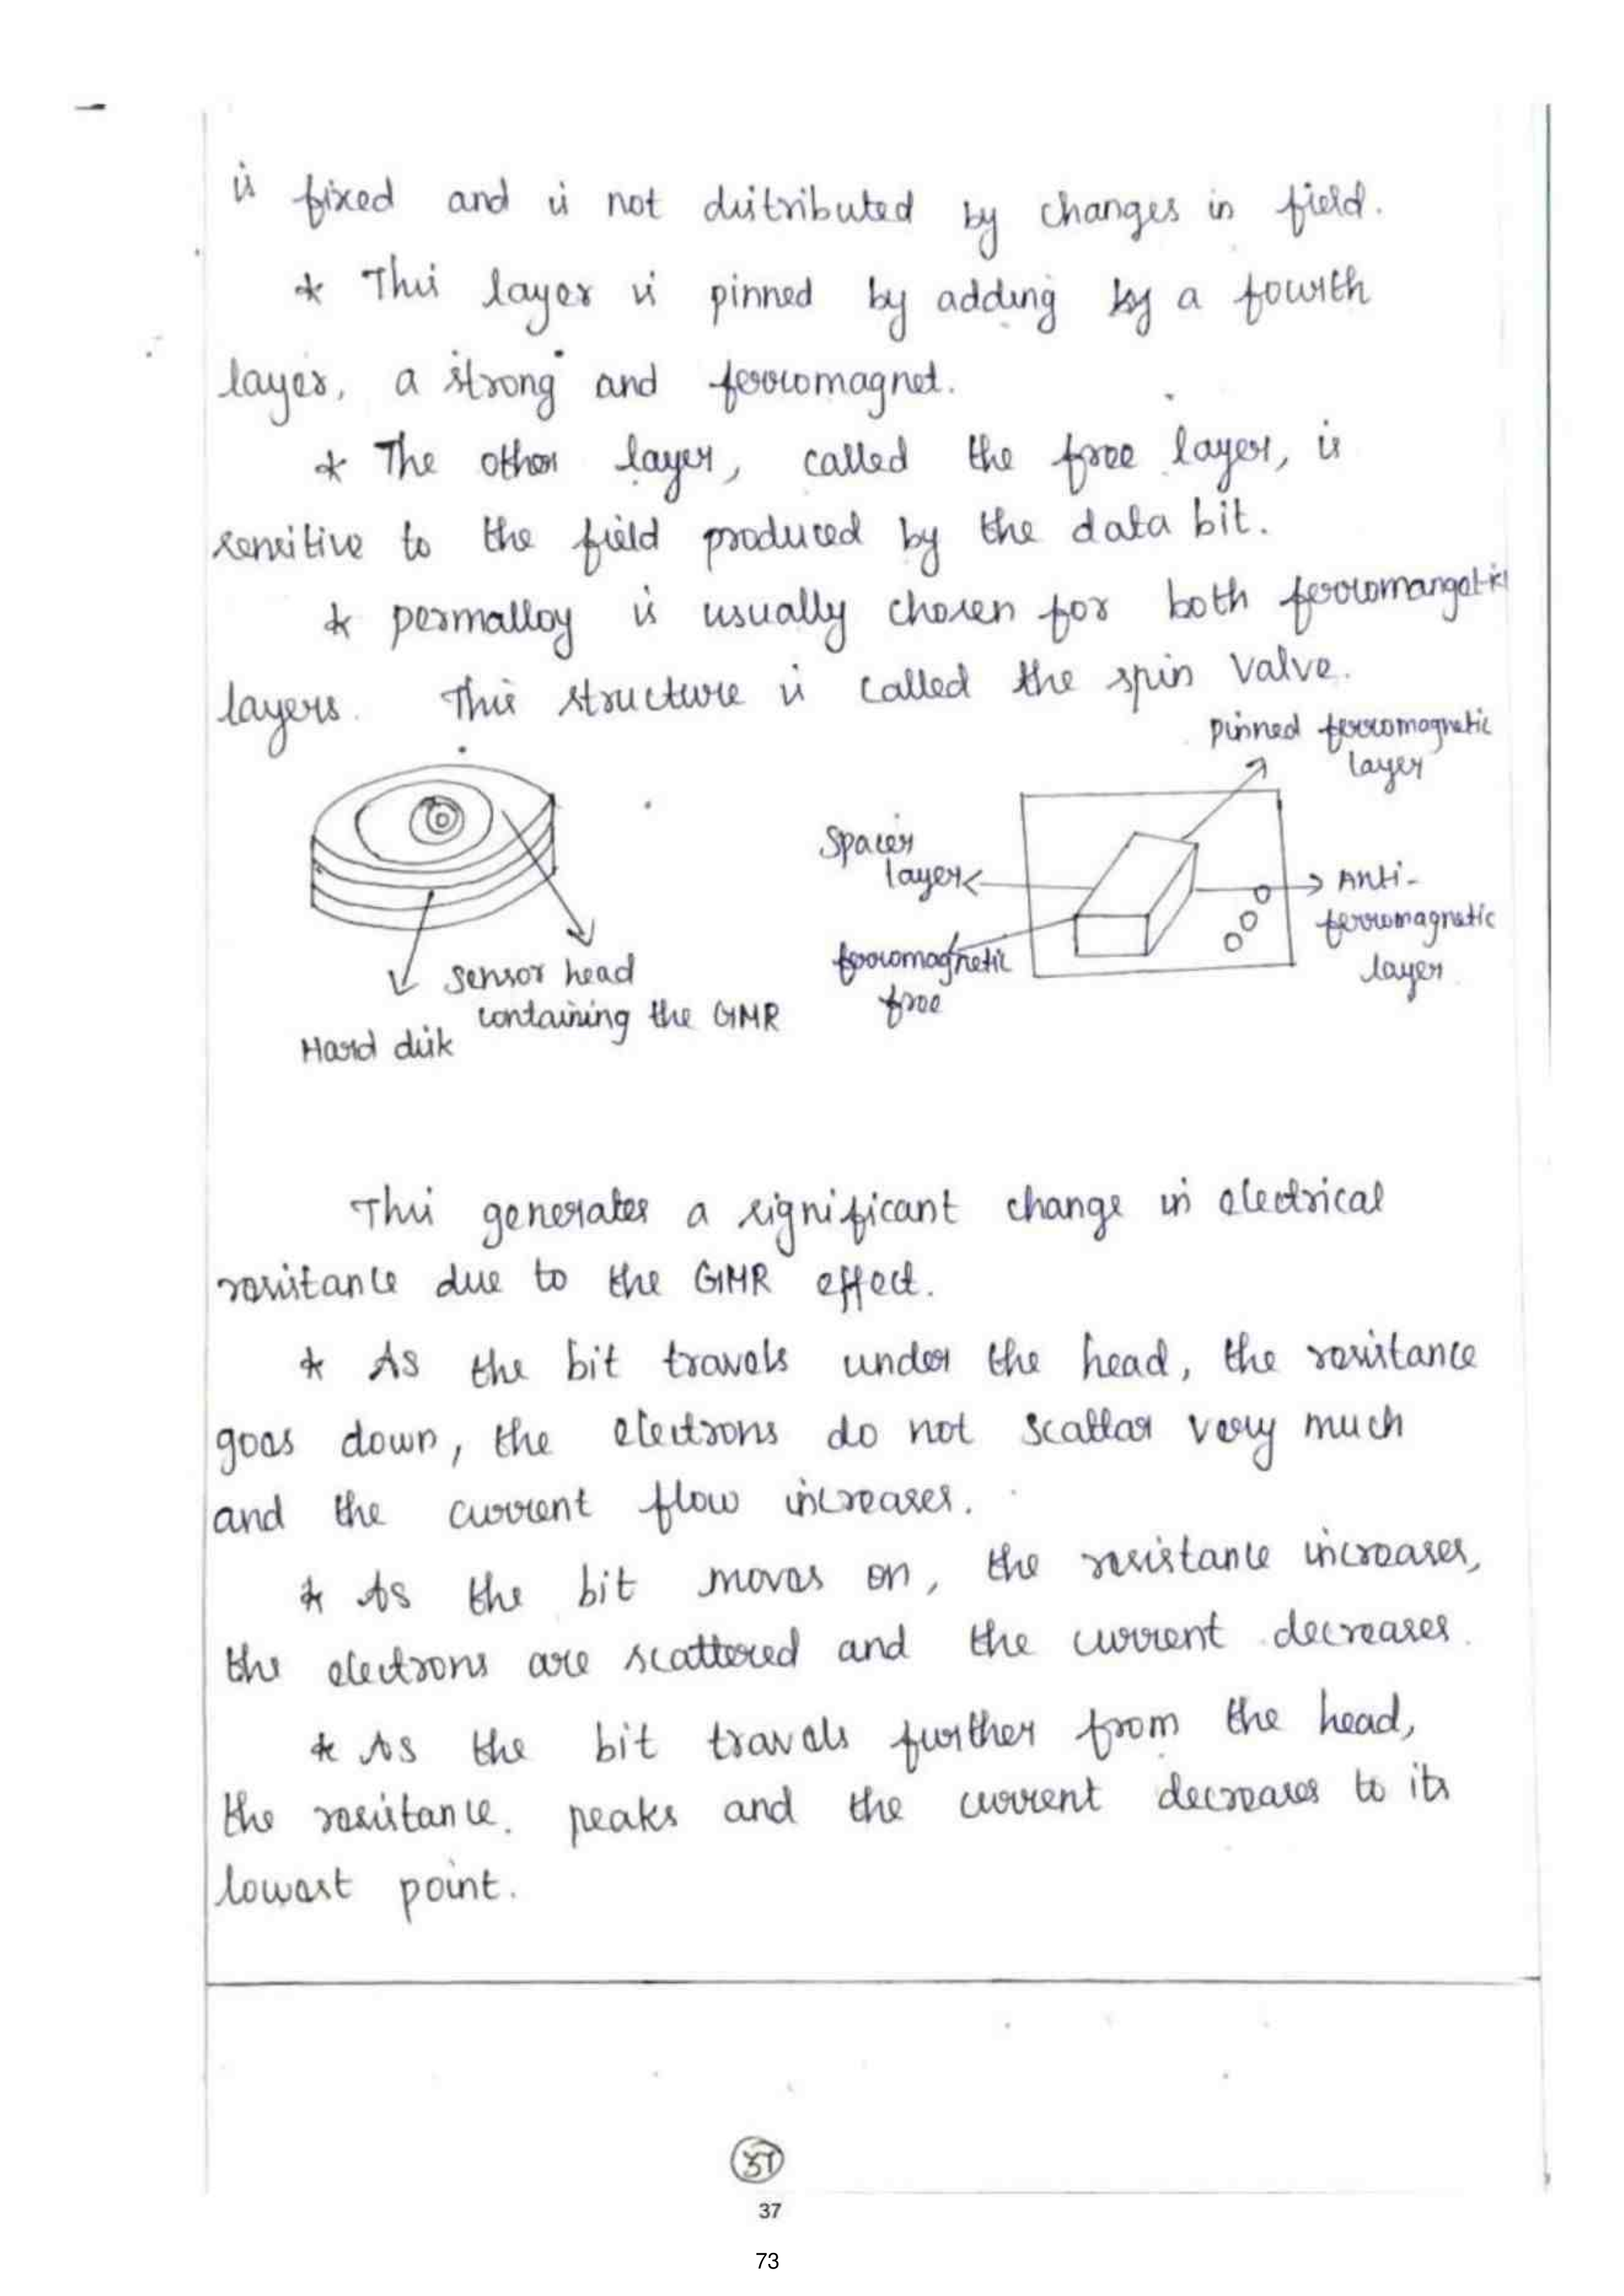 is fixed and is not distributed by changes in field.
* This layer is pinned by adding by a fourth
layer, a strong and ferromagnet.
* The other layer, called the free layer, is
sensitive to the field produced by the data bit.
* permalloy is usually chosen for both ferromangetic
layers. This structure is called the spin valve.
pinned ferromagnetic
layer
Spacer
layer
Anti-
ferromagnetic
layer
ferromagnetic
free
Sensor head
containing the GMR
Hard disk
This generates a significant change in electrical
resistance due to the GMR effect.
* As the bit travels under the head, the resistance
goes down, the electrons do not scatter very much
and the current flow increases.
* As the bit moves on, the resistance increases,
the electrons are scattered and the current decreases.
* As the bit travels further from the head,
the resistance. peaks and the current decreases to its
lowest point.
37
37
73